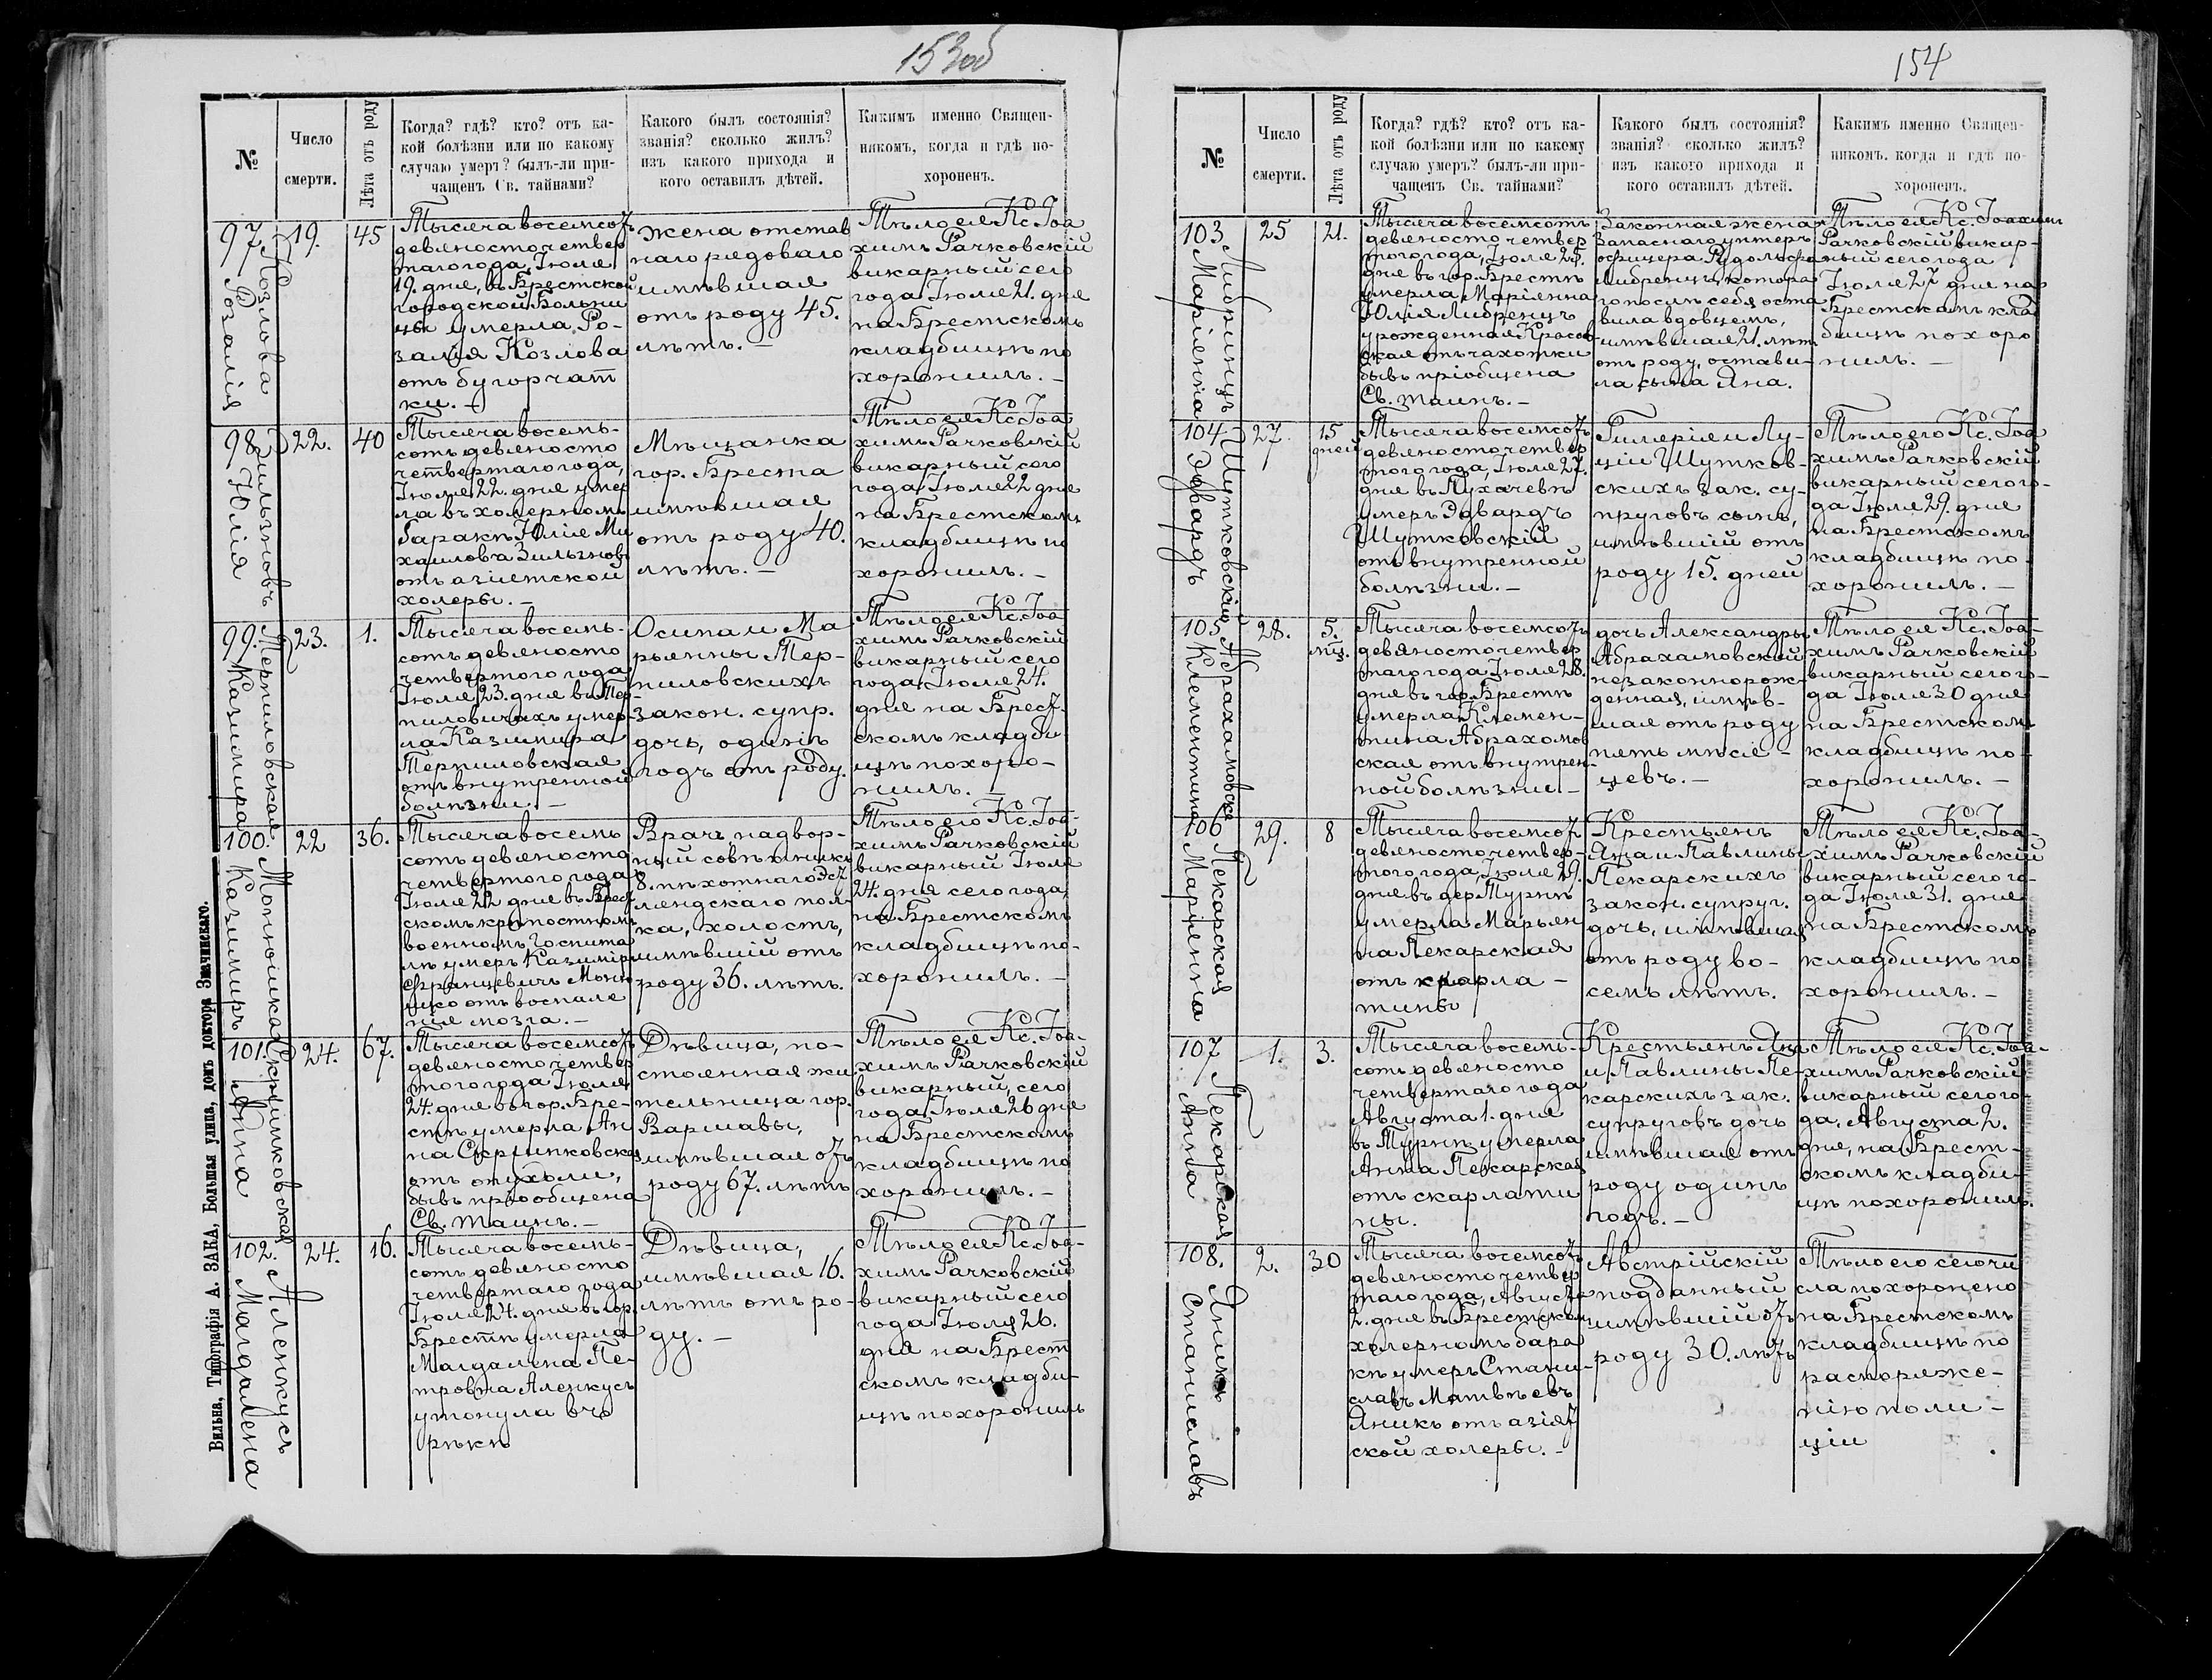 153об
№
Число
смерти.
Лѣта отъ роду
Когда? гдѣ? кто? отъ ка-
кой болѣзни или по какому
случаю умеръ? былъ-ли при-
чащенъ Св. тайнами?
Какого былъ состоянія?
званія? сколько жилъ?
изъ какого прихода и
кого оставилъ дѣтей.
Какимъ именно Священ-
никомъ, когда и гдѣ по-
хороненъ.
97
Козлова
Розалія
19.
45
Тысяча восемсотъ
девяносто четвер
таго года, Іюля
19. дня, въ Брестской
городской Больни
цы умерла Ро-
залія Козлова
отъ бугорчат
ки. –
жена отстав
наго рядоваго
имѣвшая
отъ роду 45.
лѣтъ. –
Тѣло ея Кс. Іоа
химъ Рачковскій
викарный сего
года Іюля 21. дня
на Брестскомъ
кладбищѣ по
хоронилъ. –
98
Зильзновъ
Юлія
22.
40
Тысяча восемь-
сотъ девяносто
четвертаго года,
Іюля 22. дня умер
ла въ холерномъ
баракѣ Юлія Ми
хайлова Зильзновъ
отъ азіетской
холеры. –
Мѣщанка
гор. Бреста
имѣвшая
отъ роду 40.
лѣтъ. –
Тѣло ея Кс. Іоа
химъ Рачковскій
викарный сего
года Іюля 22 дня
на Брестскомъ
кладбищѣ по
хоронилъ. –
99.
Терпиловская
Казимира
23.
1.
Тысяча восемь-
сотъ девяносто
четвертого года
Іюля 23. дня въ Тер-
пиловичахъ умер-
ла Казимира
Терпиловская
отъ внутренной
болѣзни. –
Осипа и Ма
рьянны Тер-
пиловскихъ
закон. супр.
дочь, одинъ
годъ отъ роду.
Тѣло ея Кс. Іоа
химъ Рачковскій
викарный сего
года Іюля 24.
дня на Брест
скомъ кладби
щѣ похоро-
нилъ. –
100.
Монюшка
Казимиръ
22
36.
Тысяча восемь
сотъ девяноста
четвертого года
Іюля 22 дня въ Брест
скомъ крѣпостномъ
военномъ Госпита
лѣ умеръ Казимиръ
Францевичъ Моню
шко отъ воспале
нія мозга. –
Врачъ надвор-
ный совѣтникъ
8. пѣхотнаго Эст
ляндскаго пол-
ка, холостъ,
имѣвшій отъ
роду 36. лѣтъ.
Тѣло его Кс. Іоа-
химъ Рачковскій
викарный Іюля
24. дня сего года,
на Брестскомъ
кладбищѣ по-
хоронилъ. –
101.
Скржипковская
Анна
24.
67.
Тысяча восемсотъ
девяносто четвер
того года Іюля
24. дня въ гор. Бре-
стѣ умерла Ан
на Скржипковская
отъ опухоли,
бывъ пріобщена
Св. таинъ. –
Дѣвица, по-
стоянная жи
тельница гор.
Варшавы,
имѣвшая отъ
роду 67. лѣтъ
Тѣло ея Кс. Іоа-
химъ Рачковскій
викарный, сего
года Іюля 26 дня
на Брестскомъ
кладбищѣ по
хоронилъ. –
102.
Аленкусъ
Магдалена
24.
16.
Тысяча восемь-
сотъ девяносто
четвертаго года
Іюля 24. дня въ гор.
Брестѣ умерла
Магдалена Пе-
тровна Аленкусъ
утонула въ
рѣкѣ
Дѣвица,
имѣвшая 16.
лѣтъ отъ ро-
ду. –
Тѣло ея Кс. Іоа-
химъ Рачковскій
викарный сего
года Іюля 26.
дня на Брест
скомъ кладби-
щѣ похоронилъ
Вильна, Типографія А. ЗАКА, Большая улица, домъ доктора Значинскаго.
154
№
Число
смерти.
Лѣта отъ роду
Когда? гдѣ? кто? отъ ка-
кой болѣзни или по какому
случаю умеръ? былъ-ли при-
чащенъ Св. тайнами?
Какого былъ состоянія?
званія? сколько жилъ?
изъ какого прихода и
кого оставилъ дѣтей.
Какимъ именно Священ-
никомъ. когда и гдѣ по-
хороненъ.
103
Либринцъ
Маріянна
25
21.
Тысяча восемсотъ
девяносто четвер
того года, Іюля 25.
дня въ гор. Брестѣ
умерла Маріянна
Юлія Либренцъ
урожденная Красов-
ская отъ чахотки
бывъ пріобщена
Св. таинъ. –
Законная жена
Запаснаго унтеръ
офицера Рудольфа
Либренцъ, котора
го послѣ себя оста
вила вдовцемъ,
имѣвшая 21. лѣтъ
отъ роду, остави-
ла сына Яна.
Тѣло ея Кс. Іоахимъ
Рачковскій викар-
ный сего года
Іюля 27 дня на
Брестскомъ клад
бищѣ похоро
нилъ. –
104
Шутковскій
Эдвардъ
27.
15
дней
Тысяча восемсотъ
девяносто четвер
того года, Іюля 27.
дня въ Пухачевѣ
умеръ Эдвардъ
Шутковскій
отъ внутренной
болѣзни. –
Гилярія и Лу-
ціи Шутков-
скихъ зак. су-
пруговъ сынъ,
имѣвшій отъ
роду 15. дней
Тѣло его Кс. Іоа
химъ Рачковскій
викарный сего го-
да Іюля 29. дня
на Брестскомъ
кладбищѣ по-
хоронилъ. –
105
Абрахамовска
Клементина
28.
5.
мц.
Тысяча восемсотъ
девяносто четвер
таго года Іюля 28.
дня въ гор. Брестѣ
умерла Клемен-
тина Абрахомов
ская отъ внутрен-
ной болѣзни –
дочь Александры
Абрахамовской
незаконнорож-
денная, имѣв-
шая отъ роду
пять мѣся-
цевъ. –
Тѣло ея Кс. Іоа-
химъ Рачковскій
викарный сего го-
да Іюля 30 дня
на Брестскомъ
кладбищѣ по-
хоронилъ. –
106
Пекарская
Маріянна
29.
8
Тысяча восемсотъ
девяносто четвер-
того года, Іюля 29.
дня въ дер. Турнѣ
умерла Марьян
на Пекарская
отъ скарла-
тины
Крестьянъ
Яна и Павлины
Пекарскихъ
закон. супруг.
дочь, имѣвшая
отъ роду во-
семь лѣтъ.
Тѣло ея Кс. Іоа-
химъ Рачковскій
викарный сего го-
да Іюля 31. дня
на Брестскомъ
кладбищѣ по
хоронилъ. –
107
Пекарская
Анна
1.
3.
Тысяча восемь-
сотъ девяносто
четвертаго года
Августа 1. дня
въ Турнѣ умерла
Анна Пекарская
отъ скарлати
ны.
Крестьянъ Яна
и Павлины Пе-
карскихъ зак.
супруговъ дочь
имѣвшая отъ
роду одинъ
годъ. –
Тѣло ея Кс. Іоа-
химъ Рачковскій
викарный сего го-
да, Августа 2.
дня, на Брест-
скомъ кладби-
щѣ похоронилъ.
108.
Яникъ
Станиславъ
2.
30
Тысяча восемсотъ
девяносто четвер
таго года, Августа
2. дня въ Брестском
холерномъ бара
кѣ умеръ Стани-
славъ Матвѣевъ
Яникъ отъ азіят
ской холеры. –
Австрійскій
подданный
имѣвшій отъ
роду 30. лѣтъ
Тѣло его сего чи
сла похоронено
на Брестскомъ
кладбищѣ по
распоряже-
нію поли-
ціи